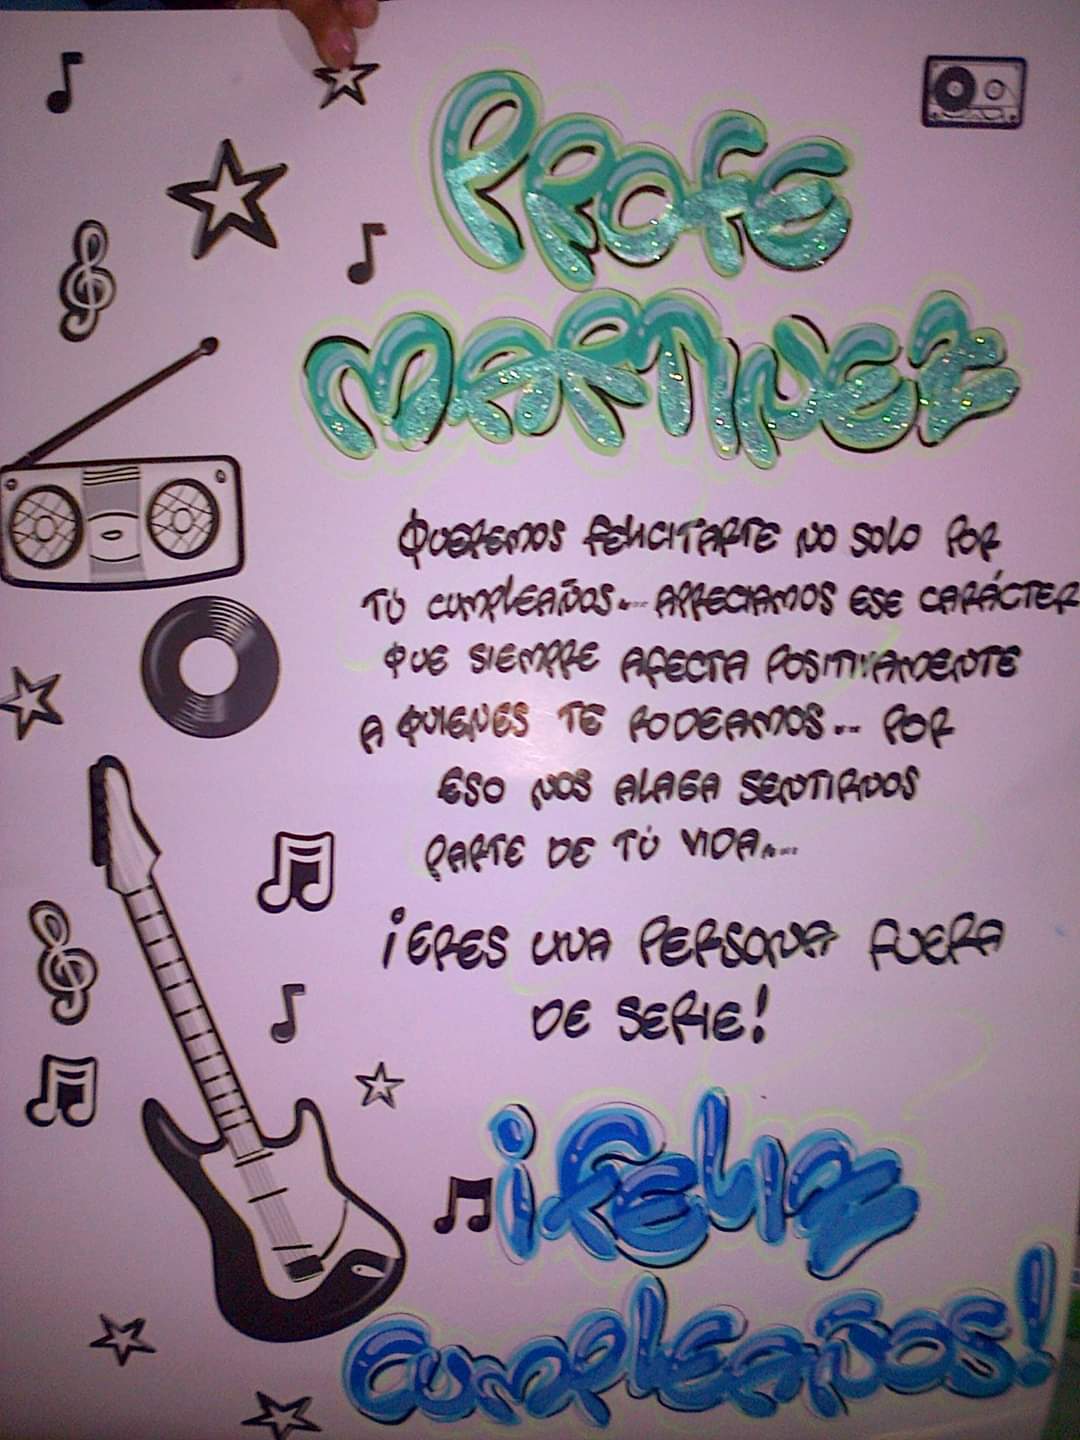 PROFE
MARTINEZ
QUEREMOS FELICITARTE NO SOLO POR
TÚ CUMPLEAÑOS.... APRECIAMOS ESE CARÁCTER
QUE SIEMPRE AFECTA POSITIVAMENTE
A QUIENES TE RODEAMOS... POR
ESO NOS ALAGA SENTIRNOS
PARTE DE TÚ VIDA....
¡ERES UNA PERSONA FUERA
DE SERIE!
¡FELIZ
CUMPLEAÑOS!